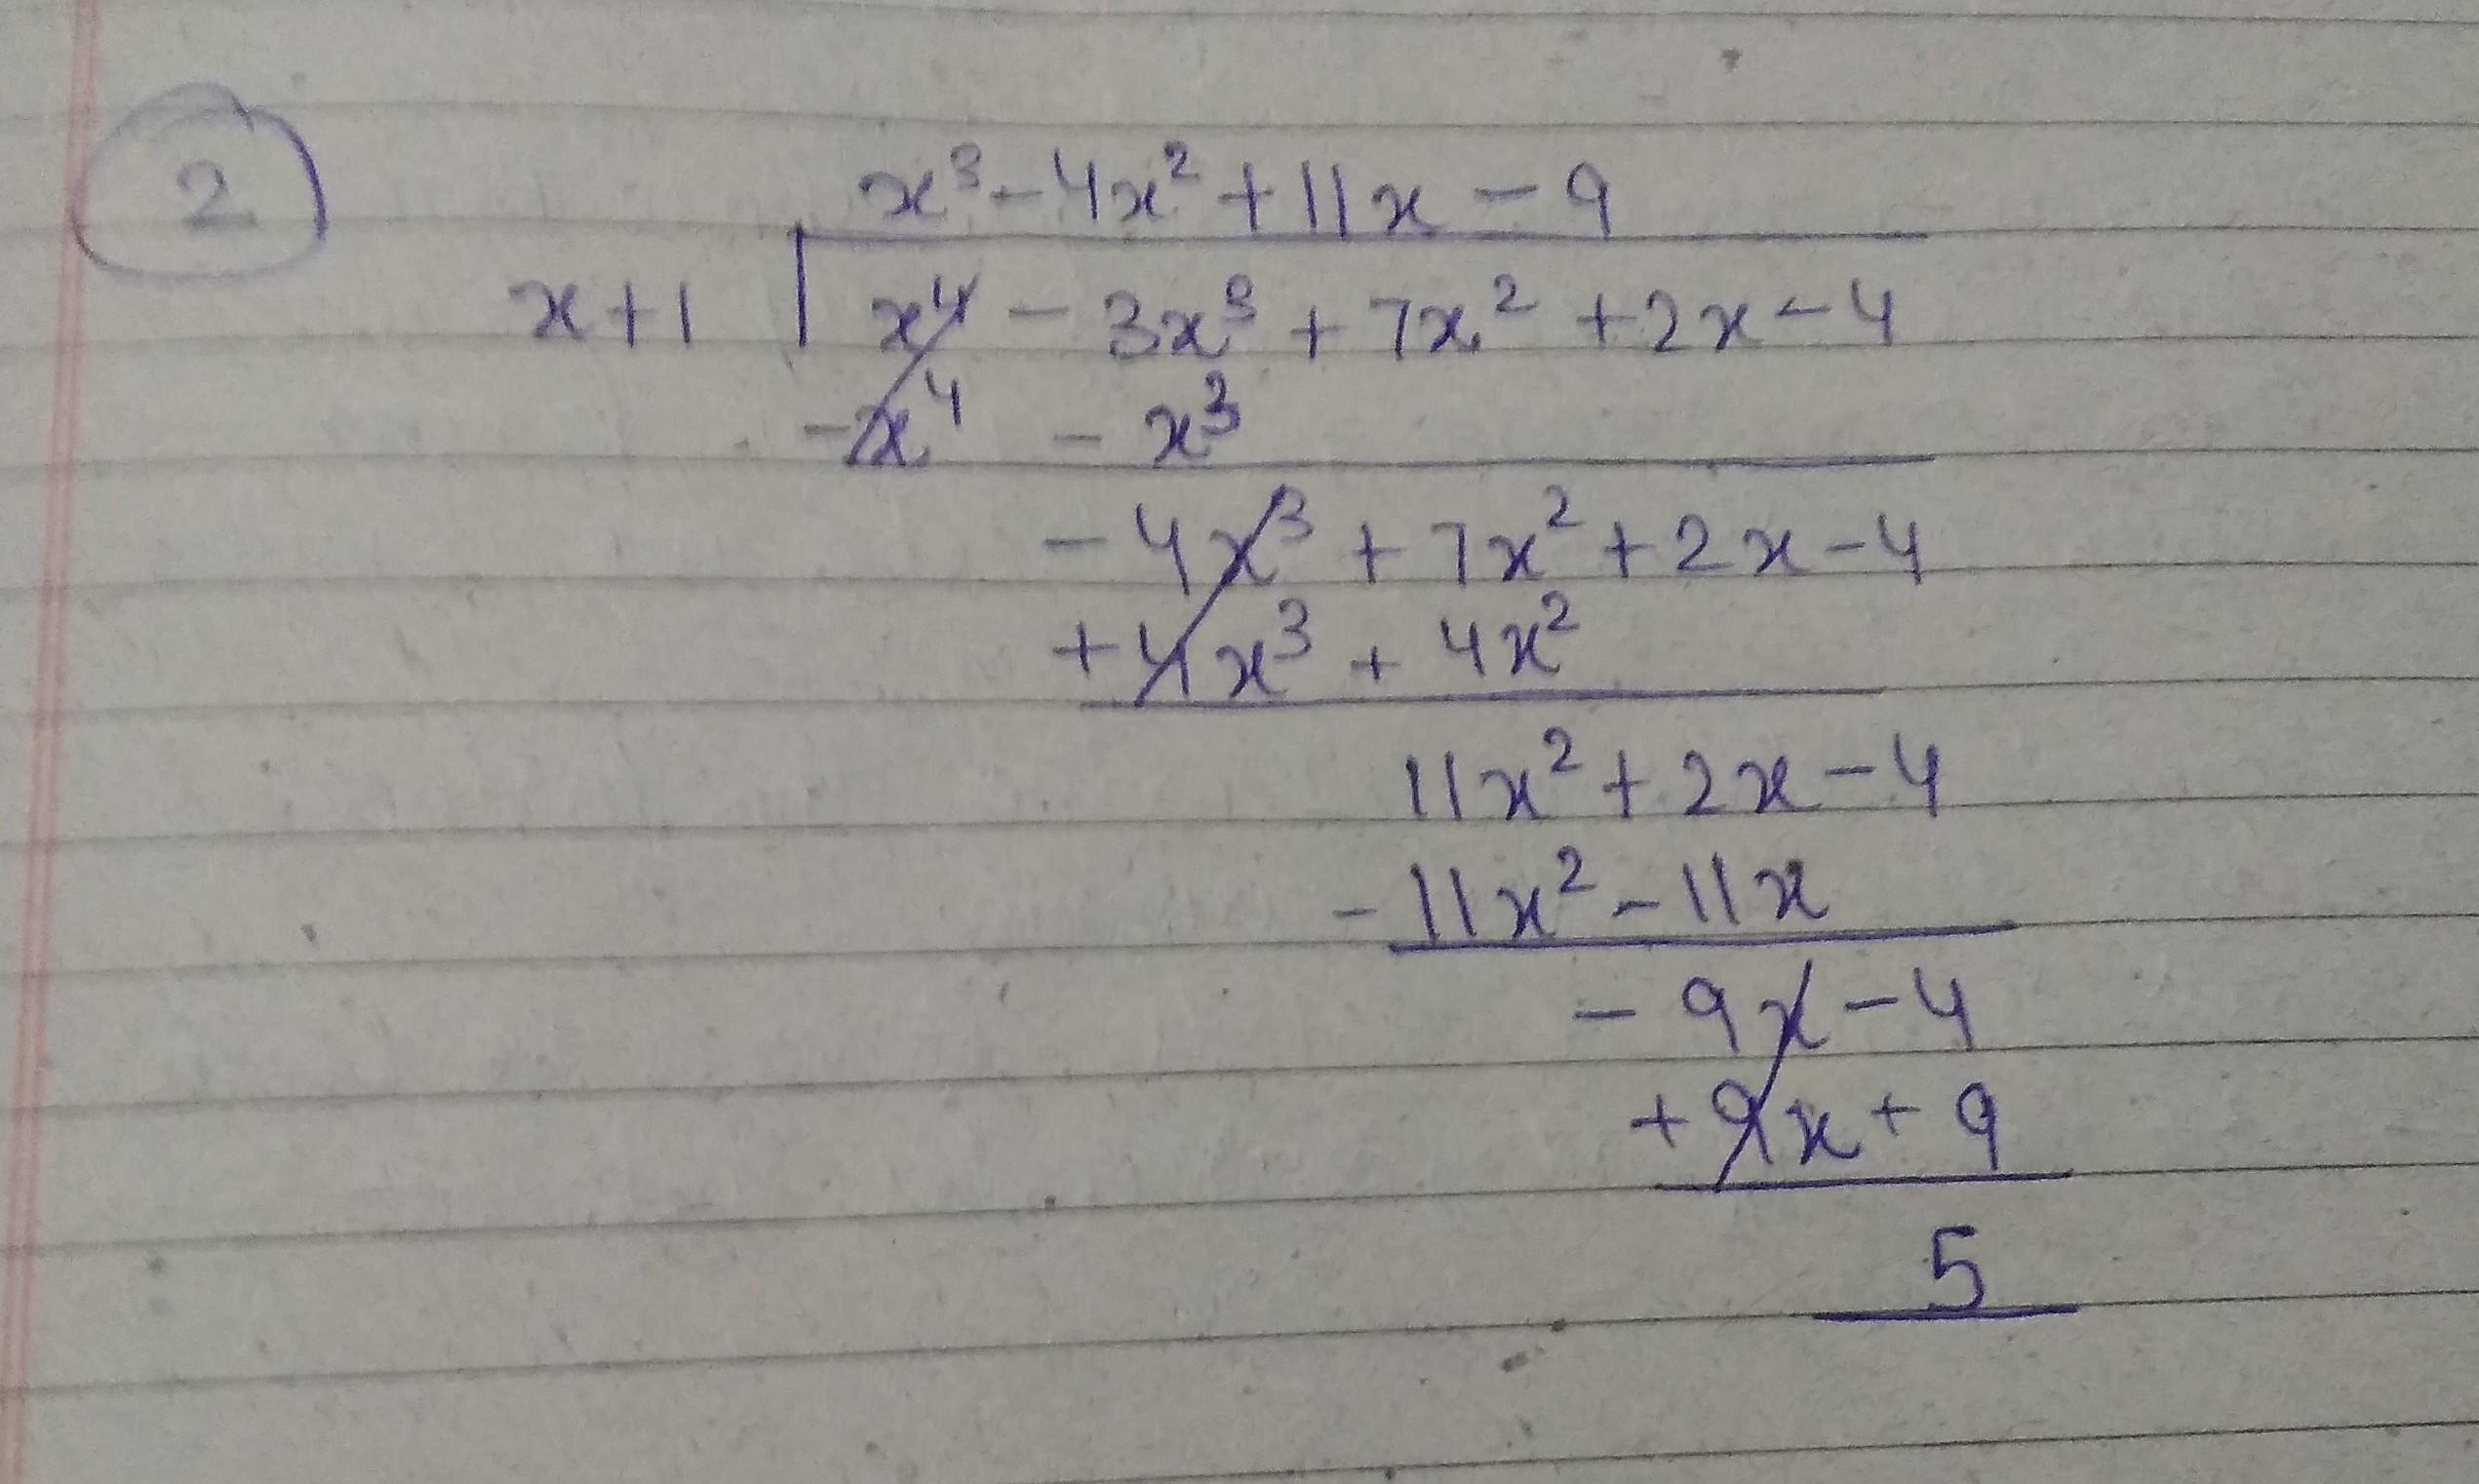 2
x³ - 4x² + 11x - 9
x+1 x⁴ - 3x³ + 7x² + 2x - 4
-x⁴ - x³
- 4x³ + 7x² + 2x - 4
+ 4x³ + 4x²
11x² + 2x - 4
- 11x² - 11x
- 9x - 4
+ 9x + 9
5